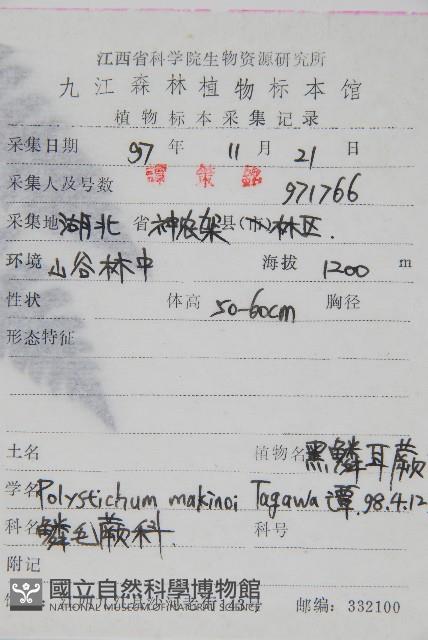 江西省科学院生物资源研究所
九江森林植物标本馆
植物标本采集记录
采集日期 97 年 11 月 21 日
采集人及号数 譚策銘 971766
采集地 湖北 省 神农架 县(市) 林区.
环境 山谷林中 海拔 1200 m
性状 体高 50-60cm 胸径
形态特征
土名 植物名 黑鳞耳蕨
学名 Polystichum makinoi Tagawa 谭.98.4.12
科名 鳞毛蕨科. 科号
附记
國立自然科學博物館
NATIONAL MUSEUM OF NATURAL SCIENCE
邮编: 332100